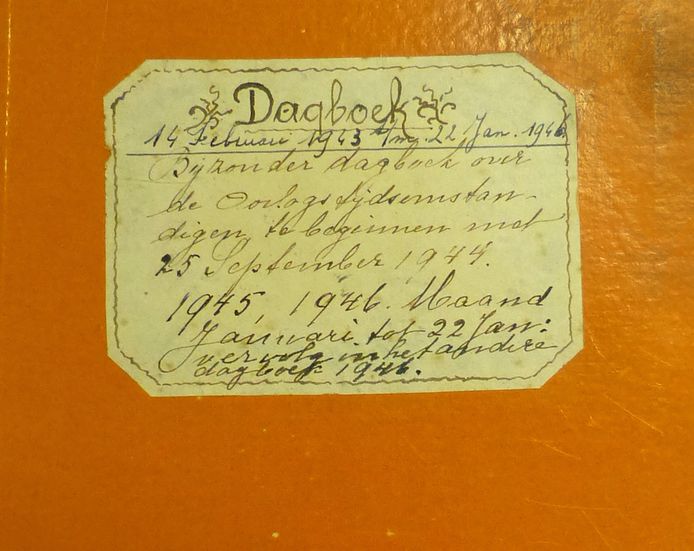 Dagboek
14 Februari 1943 t/m 22 Jan. 1946.
Bijzonder dagboek over
de Oorlogstijdsomstan-
digen te beginnen met
25 September 1944.
1945, 1946. Maand
Januari tot 22 Jan:
vervolg in het andere
dagboek 1946.